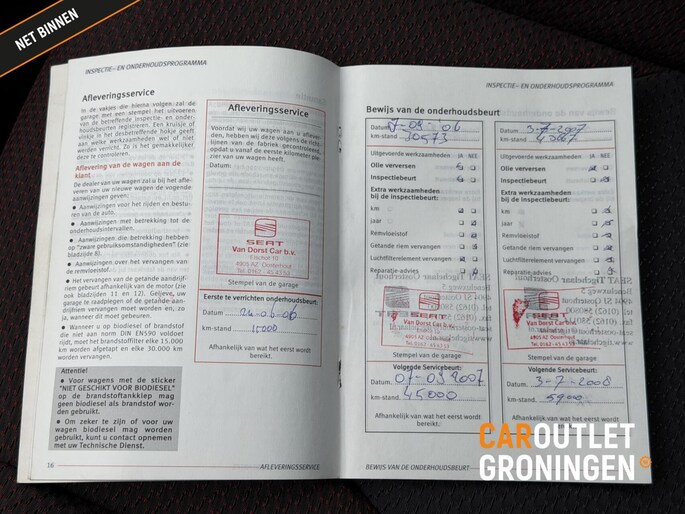 NET BINNEN
INSPECTIE- EN ONDERHOUDSPROGRAMMA
Afleveringsservice
In de vakjes die hierna volgen zal de
garage met een stempel het uitvoeren
van de betreffende inspectie- en onder-
houdsbeurten registreren. Een kruisje of
vinkje in het desbetreffende hokje geeft
aan welke werkzaamheden wel of niet
werden verricht. Zo is het gemakkelijker
deze te controleren.
Aflevering van de wagen aan de
klant
De dealer van uw wagen zal u bij het afle-
veren van uw nieuwe wagen de volgende
aanwijzingen geven:
● Aanwijzingen voor het rijden en bestu-
ren van de auto.
● Aanwijzingen met betrekking tot de
onderhoudsintervallen.
● Aanwijzingen die betrekking hebben
op "zware gebruiksomstandigheden" (zie
bladzijde 8).
● Aanwijzingen over het vervangen van
de remvloeistof.
● Het vervangen van de getande aandrijf-
riem gebeurt afhankelijk van de motor (zie
ook bladzijden 11 en 12). Gelieve, uw
garage te raadplegen of de getande aan-
drijfriem vervangen moet worden en, zo
ja, wanneer dit moet gebeuren.
● Wanneer u op biodiesel of brandstof
die niet aan norm DIN EN590 voldoet
rijdt, moet het brandstoffilter elke 15.000
km worden afgetapt en elke 30.000 km
worden vervangen.
Attentie!
● Voor wagens met de sticker
"NIET GESCHIKT VOOR BIODIESEL"
op de brandstoftankklep mag
geen biodiesel als brandstof wor-
den gebruikt.
● Om zeker te zijn of voor uw
wagen biodiesel mag worden
gebruikt, kunt u contact opnemen
met uw Technische Dienst.
16
Afleveringsservice
Voordat wij uw wagen aan u aflever-
den, hebben wij deze volgens de richt-
lijnen van de fabriek gecontroleerd,
opdat u vanaf de eerste kilometer ple-
zier van uw wagen heeft.
Datum:
SEAT
Van Dorst Car b.v.
Elschot 10
4905 AZ Oosterhout
Tel. 0162 - 45 43 53
Stempel van de garage
Eerste te verrichten onderhoudsbeurt:
Datum 24-06-06
km-stand 15000
Afhankelijk van wat het eerst wordt
bereikt.
AFLEVERINGSSERVICE
INSPECTIE- EN ONDERHOUDSPROGRAMMA
Bewijs van de onderhoudsbeurt
Datum 7-09-06
km-stand 30573
Uitgevoerde werkzaamheden JA NEE
Olie verversen
Inspectiebeurt
Extra werkzaamheden
bij de inspectiebeurt:
km
jaar
Remvloeistof
Getande riem vervangen
Luchtfilterelement vervangen
Reparatie-advies
Van Dorst Car b.v.
4905 AZ Oosterhout
Tel. 0162 - 45 43 53
Stempel van de garage
Volgende Servicebeurt:
Datum 07-09 2007
km-stand 45000
Afhankelijk van wat het eerst wordt
bereikt.
Datum 3-7-2007
km-stand
Uitgevoerde werkzaamheden JA NEE
Olie verversen
Inspectiebeurt
Extra werkzaamheden
bij de inspectiebeurt:
km
jaar
Remvloeistof
Getande riem vervangen
Luchtfilterelement vervangen
Reparatie-advies
Van Dorst Car b.v.
Stempel van de garage
Volgende Servicebeurt:
Datum 3-7-2008
km-stand
Afhankelijk van wat het eerst wordt
BEWIJS VAN DE ONDERHOUDSBEURT
CAROUTLET
GRONINGEN